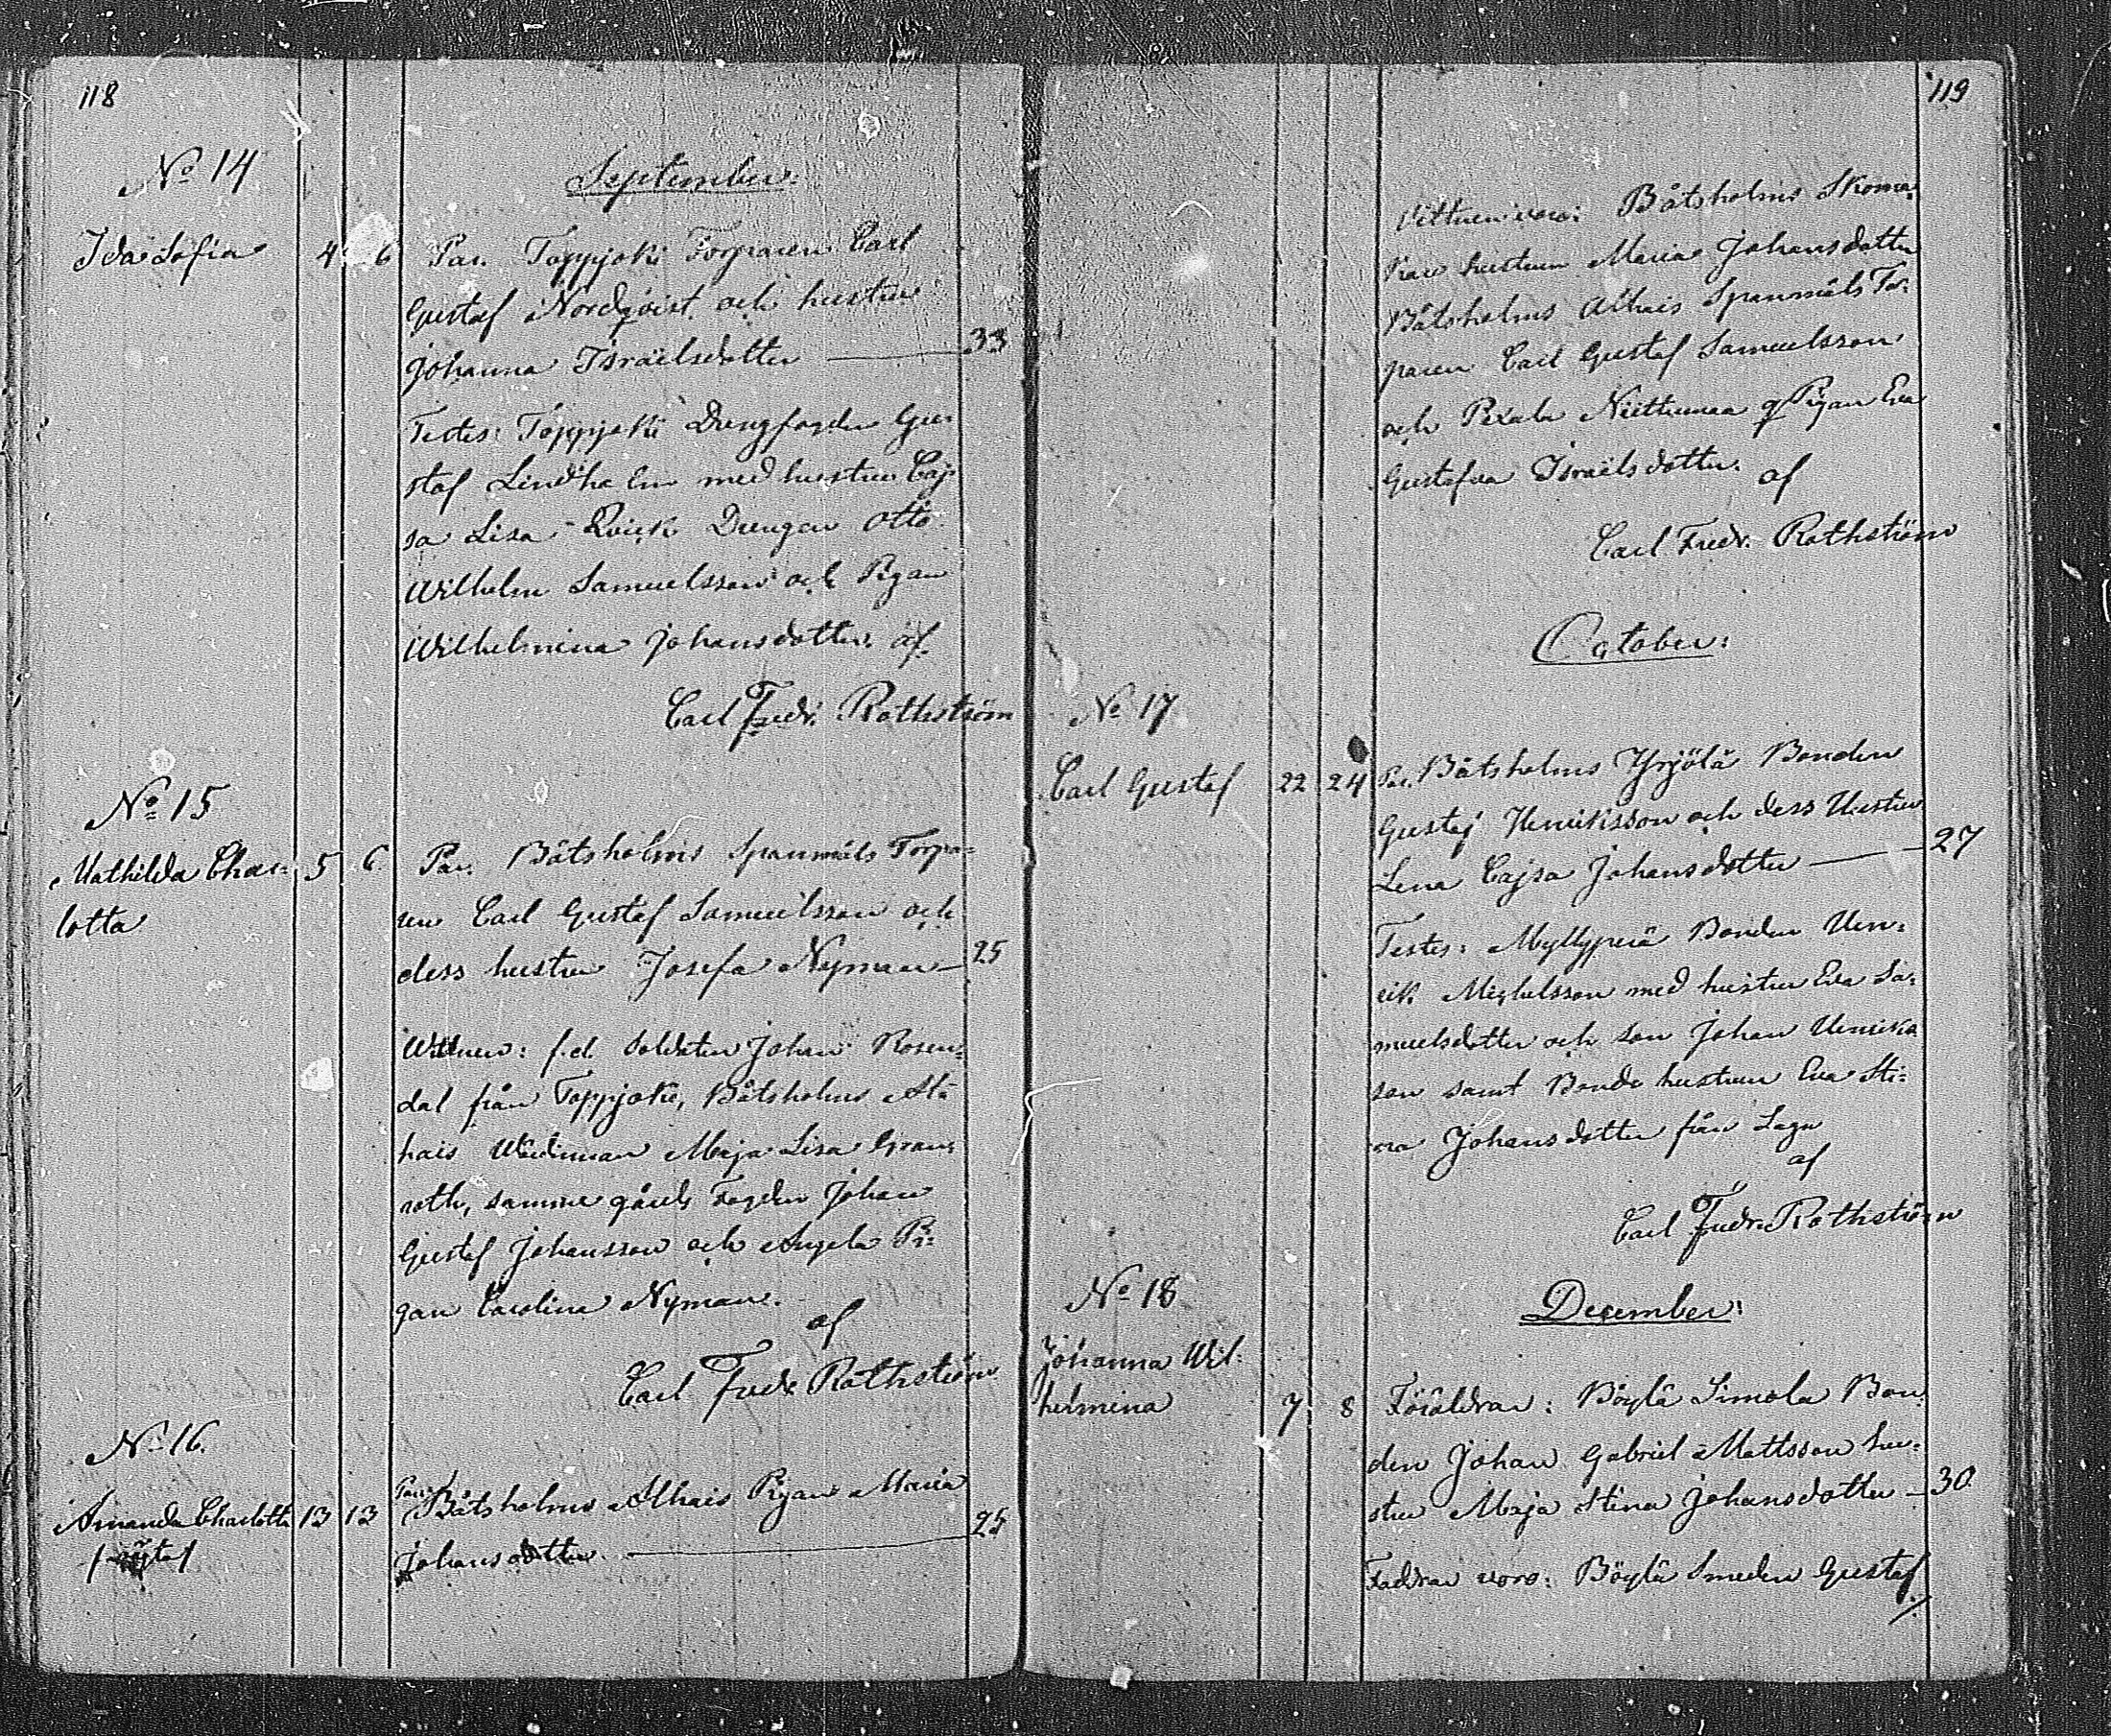 118
No 14
September.
Ida Sofia 4 6 Par. Toppjoki Torparen Carl
Gustaf Nordqvist och hustru
Johanna Israelsdotter — 33
Testes: Toppjoki Drengfogden Gu-
staf Lindholm med hustru Caj-
sa Lisa Qvick Drengen Otto
Wilhelm Samuelsson och Pigan
Wilhelmina Johansdotter. af
Carl Fredr. Rothström
No 15
Mathilda Char- 5 6 Par. Båtsholms Spanmåls Torpa-
lotta
ren Carl Gustaf Samuelsson och
dess hustru Josefa Nyman — 25
Wittnen: f.d. Soldaten Johan Rosen-
dal från Toppjoki, Båtsholms Al-
hais Maja Lisa Gran-
roth, samme gårds Fogden Johan
Gustaf Johansson och Angela Pi-
gan Carolina Nyman.
af
Carl Fredr. Rothström
No 16.
Amanda Charlotta 13 13 Båtsholms Alhais Pigan Maria
Johansdotter — 25
119
Vittnen voro: Båtsholms Skoma-
kare hustrun Maria Johansdotter
Båtsholms Alhais Spanmåls Tor-
paren Carl Gustaf Samuelsson
och Pixala Niittumaa Pigan Eva
Gustafva Israelsdotter.
af
Carl Fredr. Rothström
October:
No 17
Carl Gustaf 22 24 Par. Båtsholms Yrjölä Bonden
Gustaf Henriksson och dess Hustru
Lena Cajsa Johansdotter — 27
Testes: Myllyperä Bonden Hen-
rik Michelsson med hustru Eva Sa-
muelsdotter och son Johan Henriks
son samt Bonde hustrun Eva Sti-
na Johansdotter från Laga
af
Carl Fredr. Rothström
No 18
December:
Johanna Wil-
helmina 7 8 Föräldrar: Böylä Simola Bon-
den Johan Gabriel Mattsson hu-
stru Maja Stina Johansdotter — 30.
Faddrar voro: Böylä Smeden Gustaf